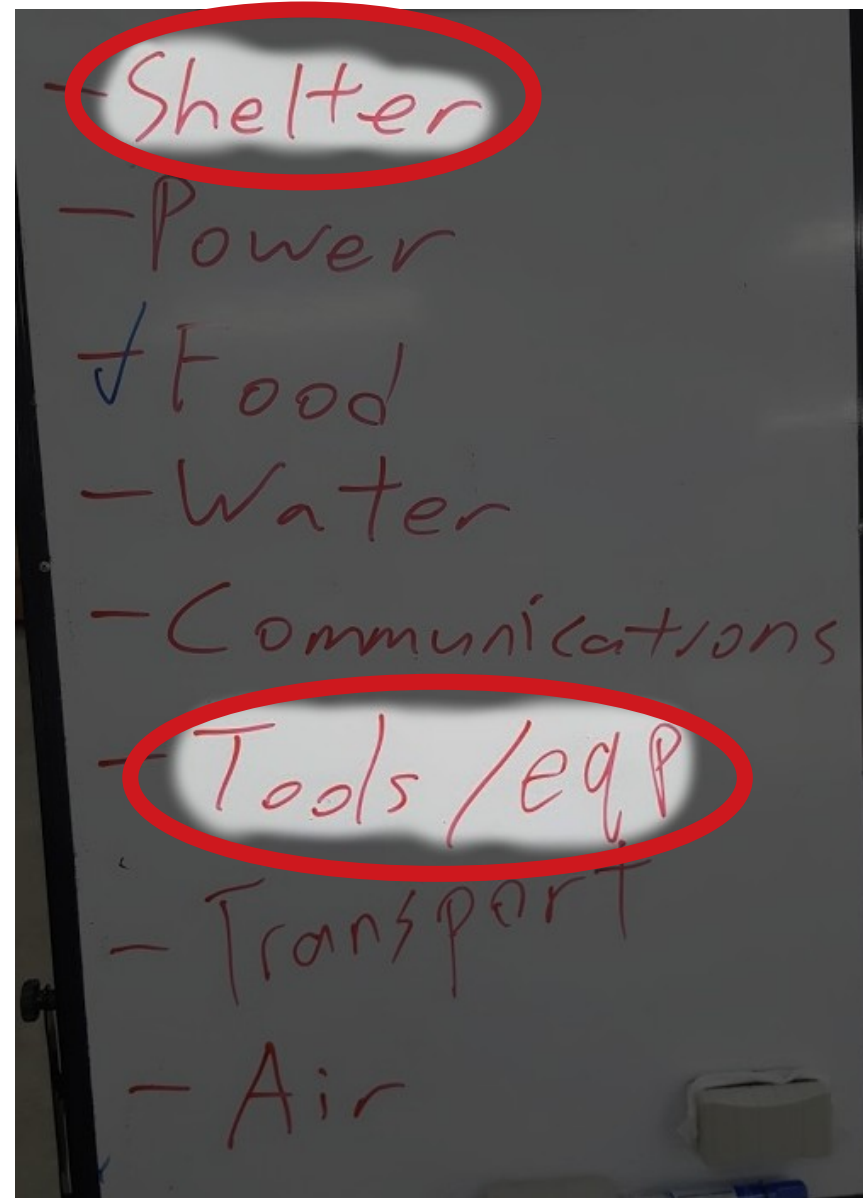 - Shelter
- Power
✓ Food
- Water
- Communications
- Tools/eqp
- Transport
- Air